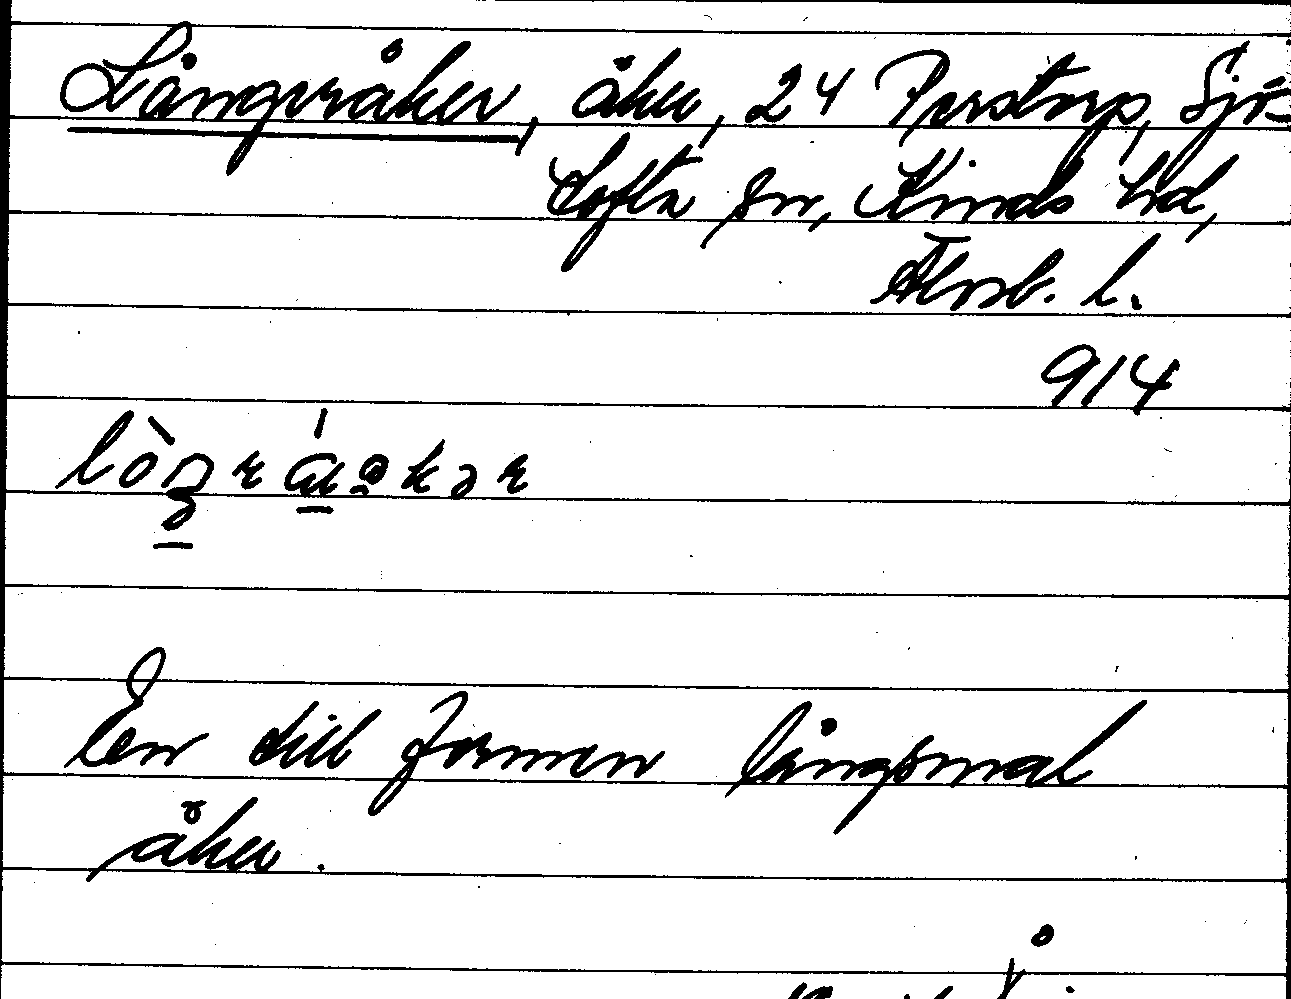 Långvråker, åker, 24 Perstorp, Sjö-
tofta sn, Kinds hd,
Älvsb. l.
914
En till formen långsmal
åker.